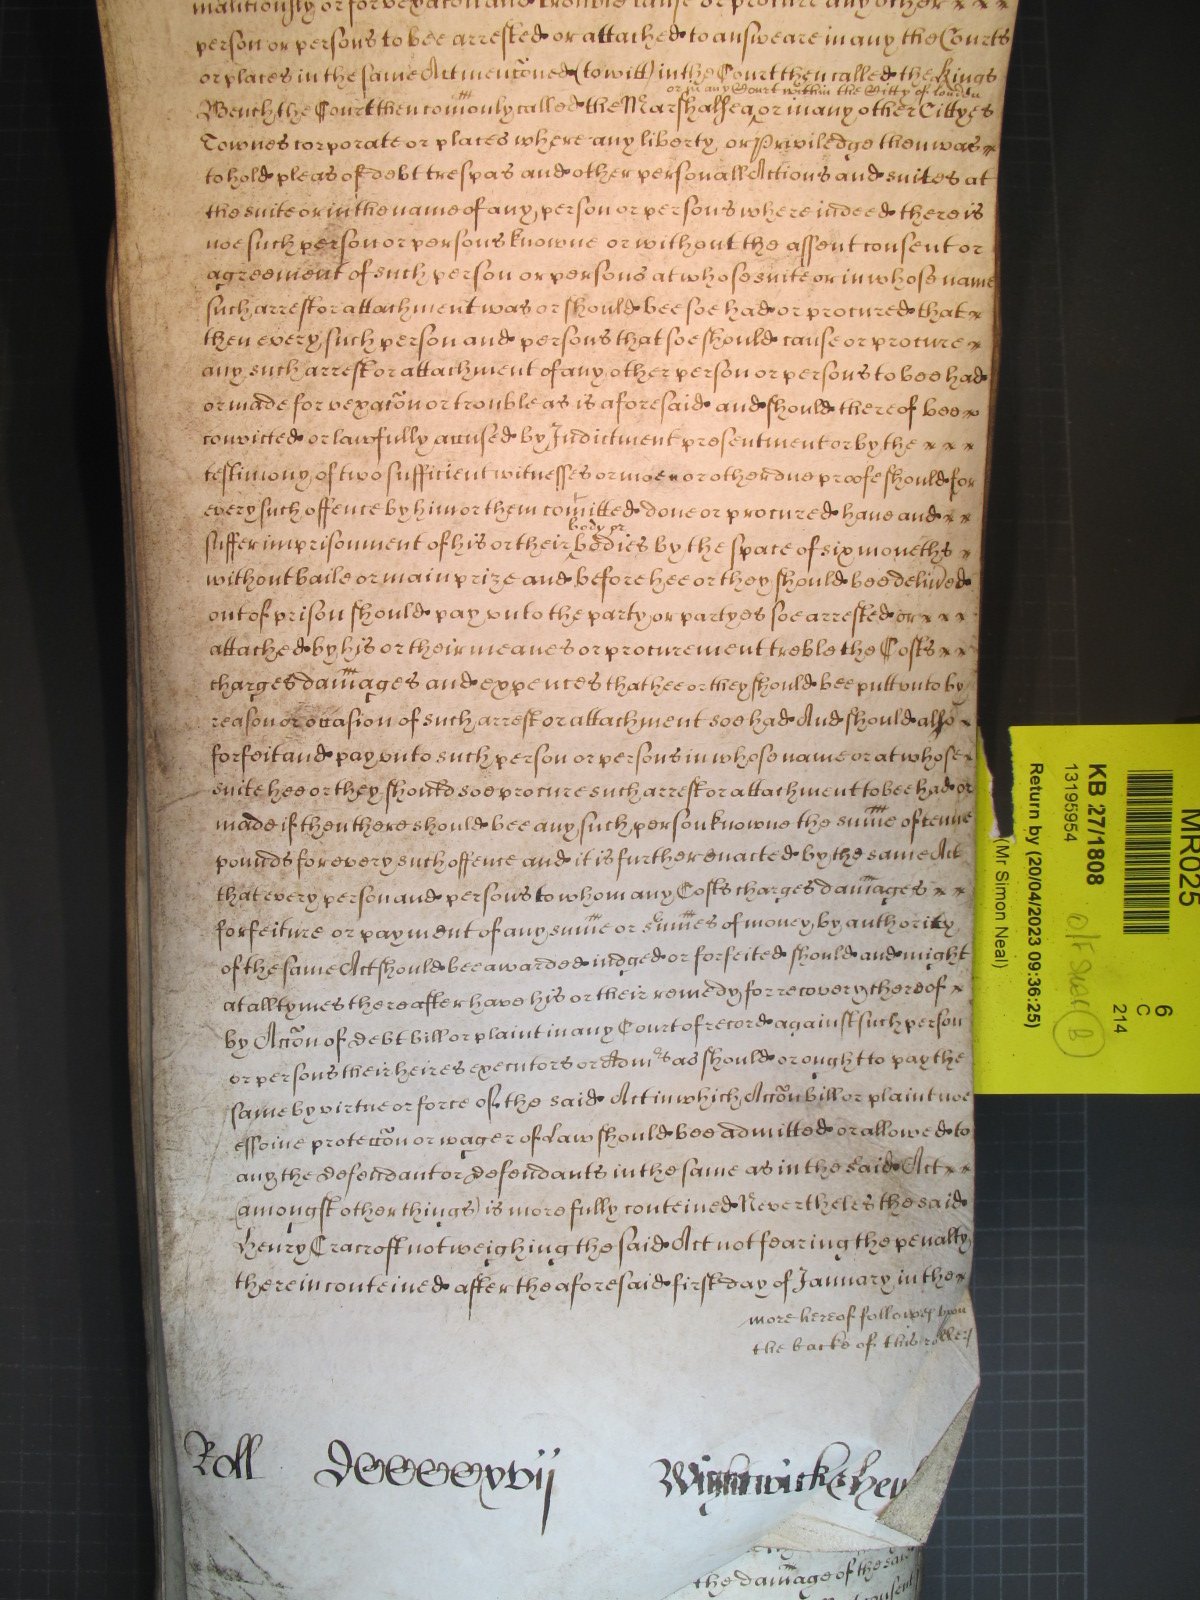 malitiously or for vexacon and trouble cause or procure any other
person or persons to bee arrested or attached to answeare in any the Courts
or places in the same Act menconed (to witt) in the Court then called the Kings
or in any Court within the Citty of London
Bench the Court then comonly called the Marshalsea or in any other Cittyes
Townes corporate or places where any liberty or Priviledge then was
to hold pleas of debt trespas and other personall Actions and suites at
the suite or in the name of any person or persons where indeed there is
noe such person or persons knowne or without the assent consent or
agreement of such person or persons at whose suite or in whose name
such arrest or attachment was or should bee soe had or procured that
then every such person and persons that soe should cause or procure
any such arrest or attachment of any other person or persons to bee had
or made for vexacon or trouble as is aforesaid and should thereof bee
convicted or lawfully accused by Indictment presentment or by the
testimony of two sufficient witnesses or moe or other due proofe should for
every such offence by him or them comitted done or procured have and
body or
suffer imprisonment of his or their bodies by the space of six moneths
without baile or mainprize and before hee or they should bee delivred
out of prison should pay unto the party or partyes soe arrested or
attached by his or their meanes or procurement treble the Costs
charges damages and expences that hee or they should bee putt unto by
reason or occasion of such arrest or attachment soe had And should also
forfeit and pay unto such person or persons in whose name or at whose
suite hee or they should soe procure such arrest or attachment to bee had or
made if then there should bee any such person knowne the sume of tenne
pounds for every such offence and it is further enacted by the same Act
that every person and persons to whom any Costs charges damages
forfeiture or payment of any sume or sumes of money by authority
of the same Act should bee awarded iudged or forfeited should and might
at all tymes thereafter have his or their remedy for recovery thereof
by Accon of debt bill or plaint in any Court of record against such person
or persons their heires executors or Adm̃s as should or ought to pay the
same by virtue or force of the said Act in which Accon bill or plaint noe
essoine proteccon or wager of Law should bee admitted or allowed to
any the defendant or defendants in the same as in the said Act
(amongst other things) is more fully conteined Nevertheles the said
Henry Cracroft not weighing the said Act not fearing the penalty
therein conteined after the aforesaid first day of January in the
more hereof followes upon
the backe of this roller
Roll DCCCCxvij Wightwicke hen
the damage of the said
MR025
6
C
214
KB 27/1808
13195954
Return by (20/04/2023 09:36:25)
(Mr Simon Neal)